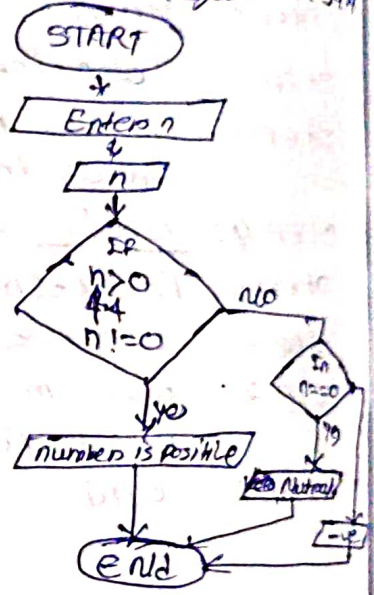 START
Enters n
n
If
n>0
&&
n!=0
NO
yes
If
n==0
number is positive
Nutral
-ve
END